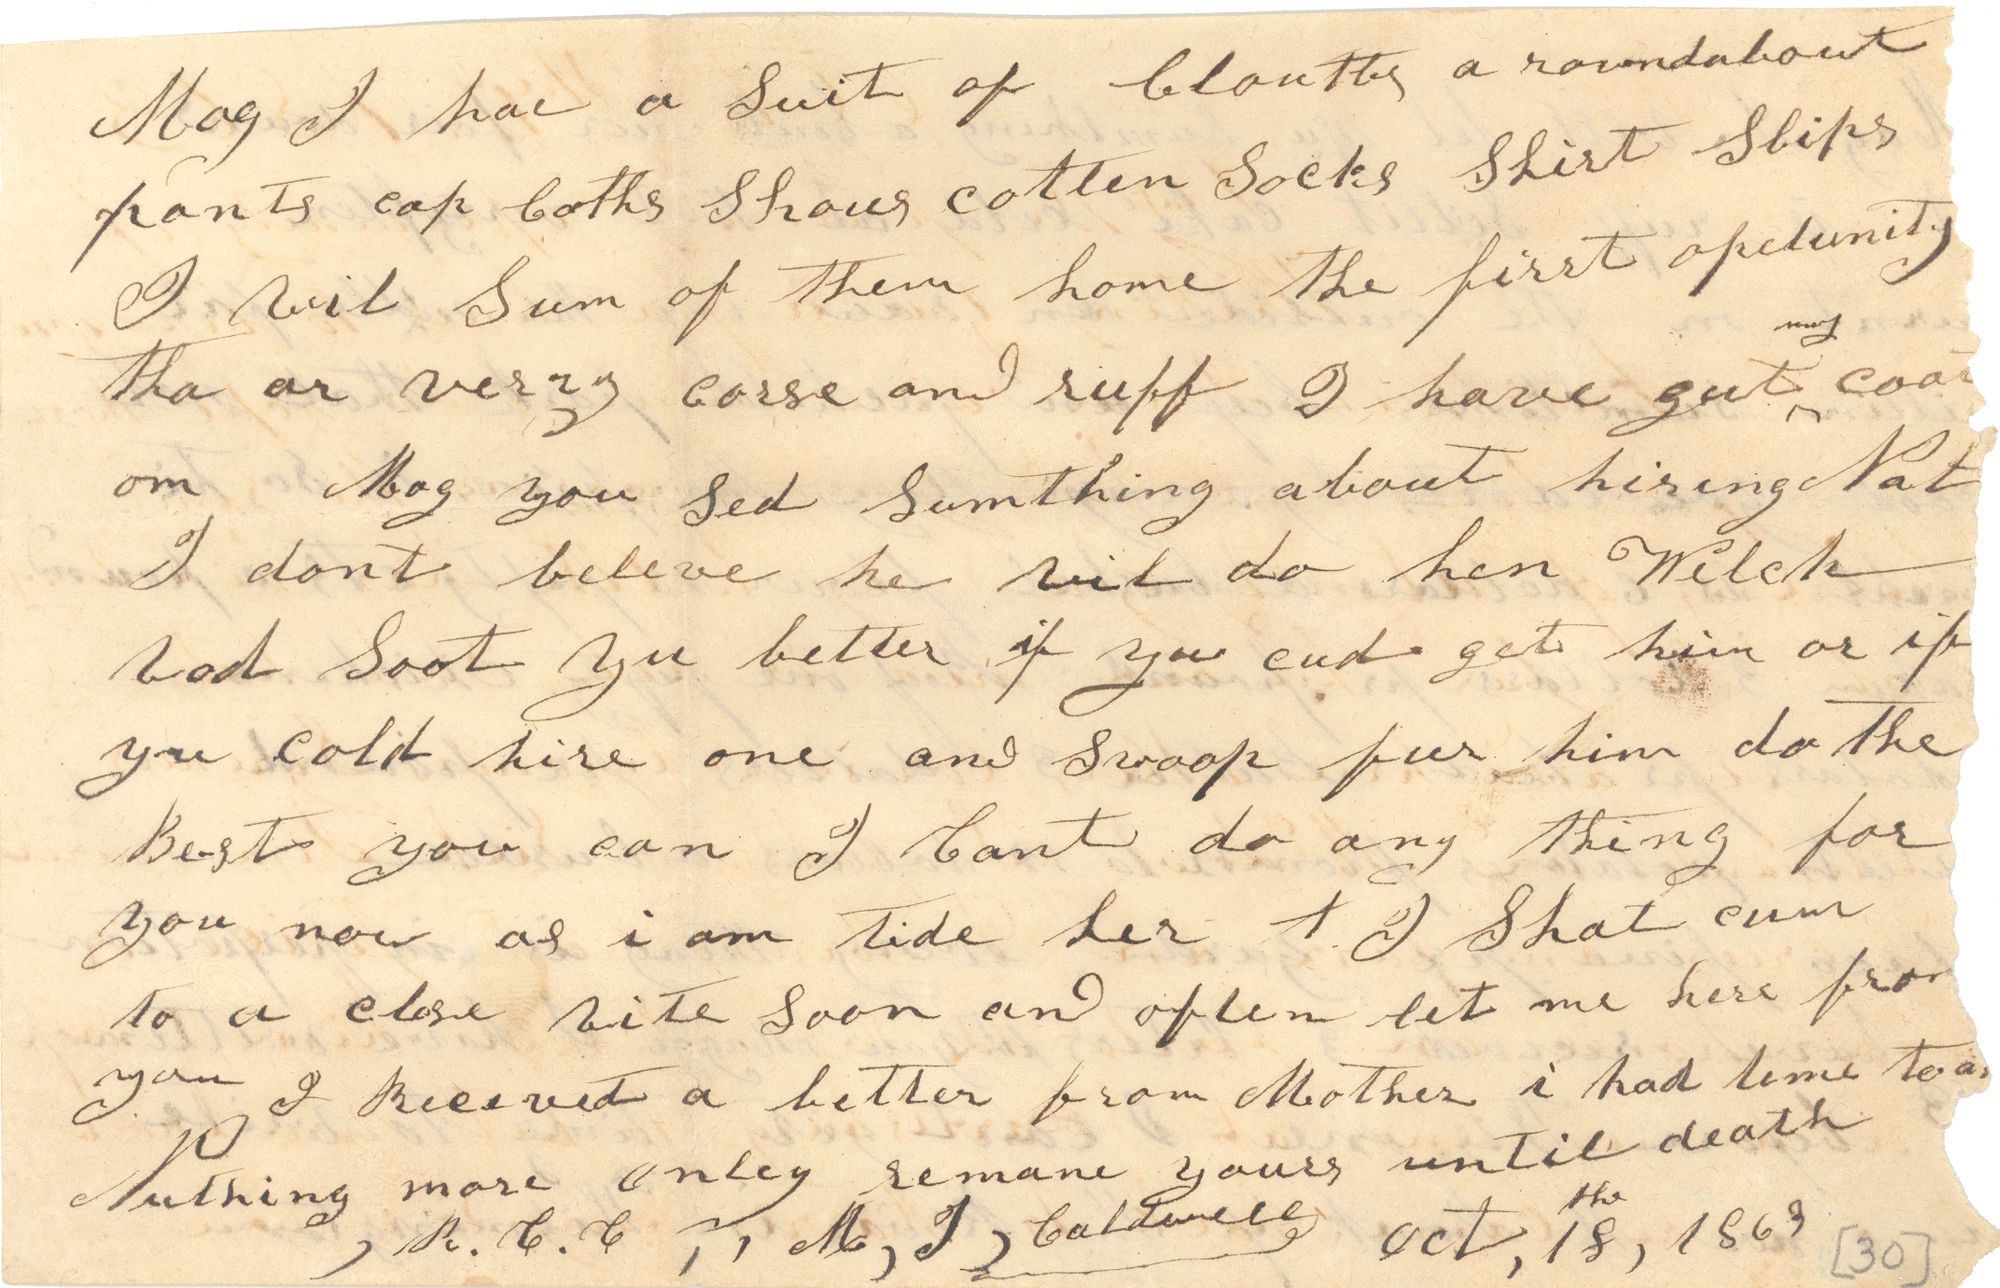 Mag I hae a Suit of Clouths a roundabout
pants cap Coths Shous cotten Socks Shirt Slips
I wil Sum of them home the first opdunity
tha ar verry corse and ruff I have gut my coat
om Mag you sed Sumthing about hiring Nat
I dont beleve he wil do hen Welch
wod Soot yu better if you cud get him or if
yu cold hire one and Swoop fur him do the
Best you can I Cant do any thing for
you now as i am tide her I Shal cum
to a close Rite Soon and often let me here from
you I Receved a letter from Mother i had time to
Nuthing more onley remane yours until death
R. C. C T, M, J, Caldwell Oct, 18, the 1863
[30]